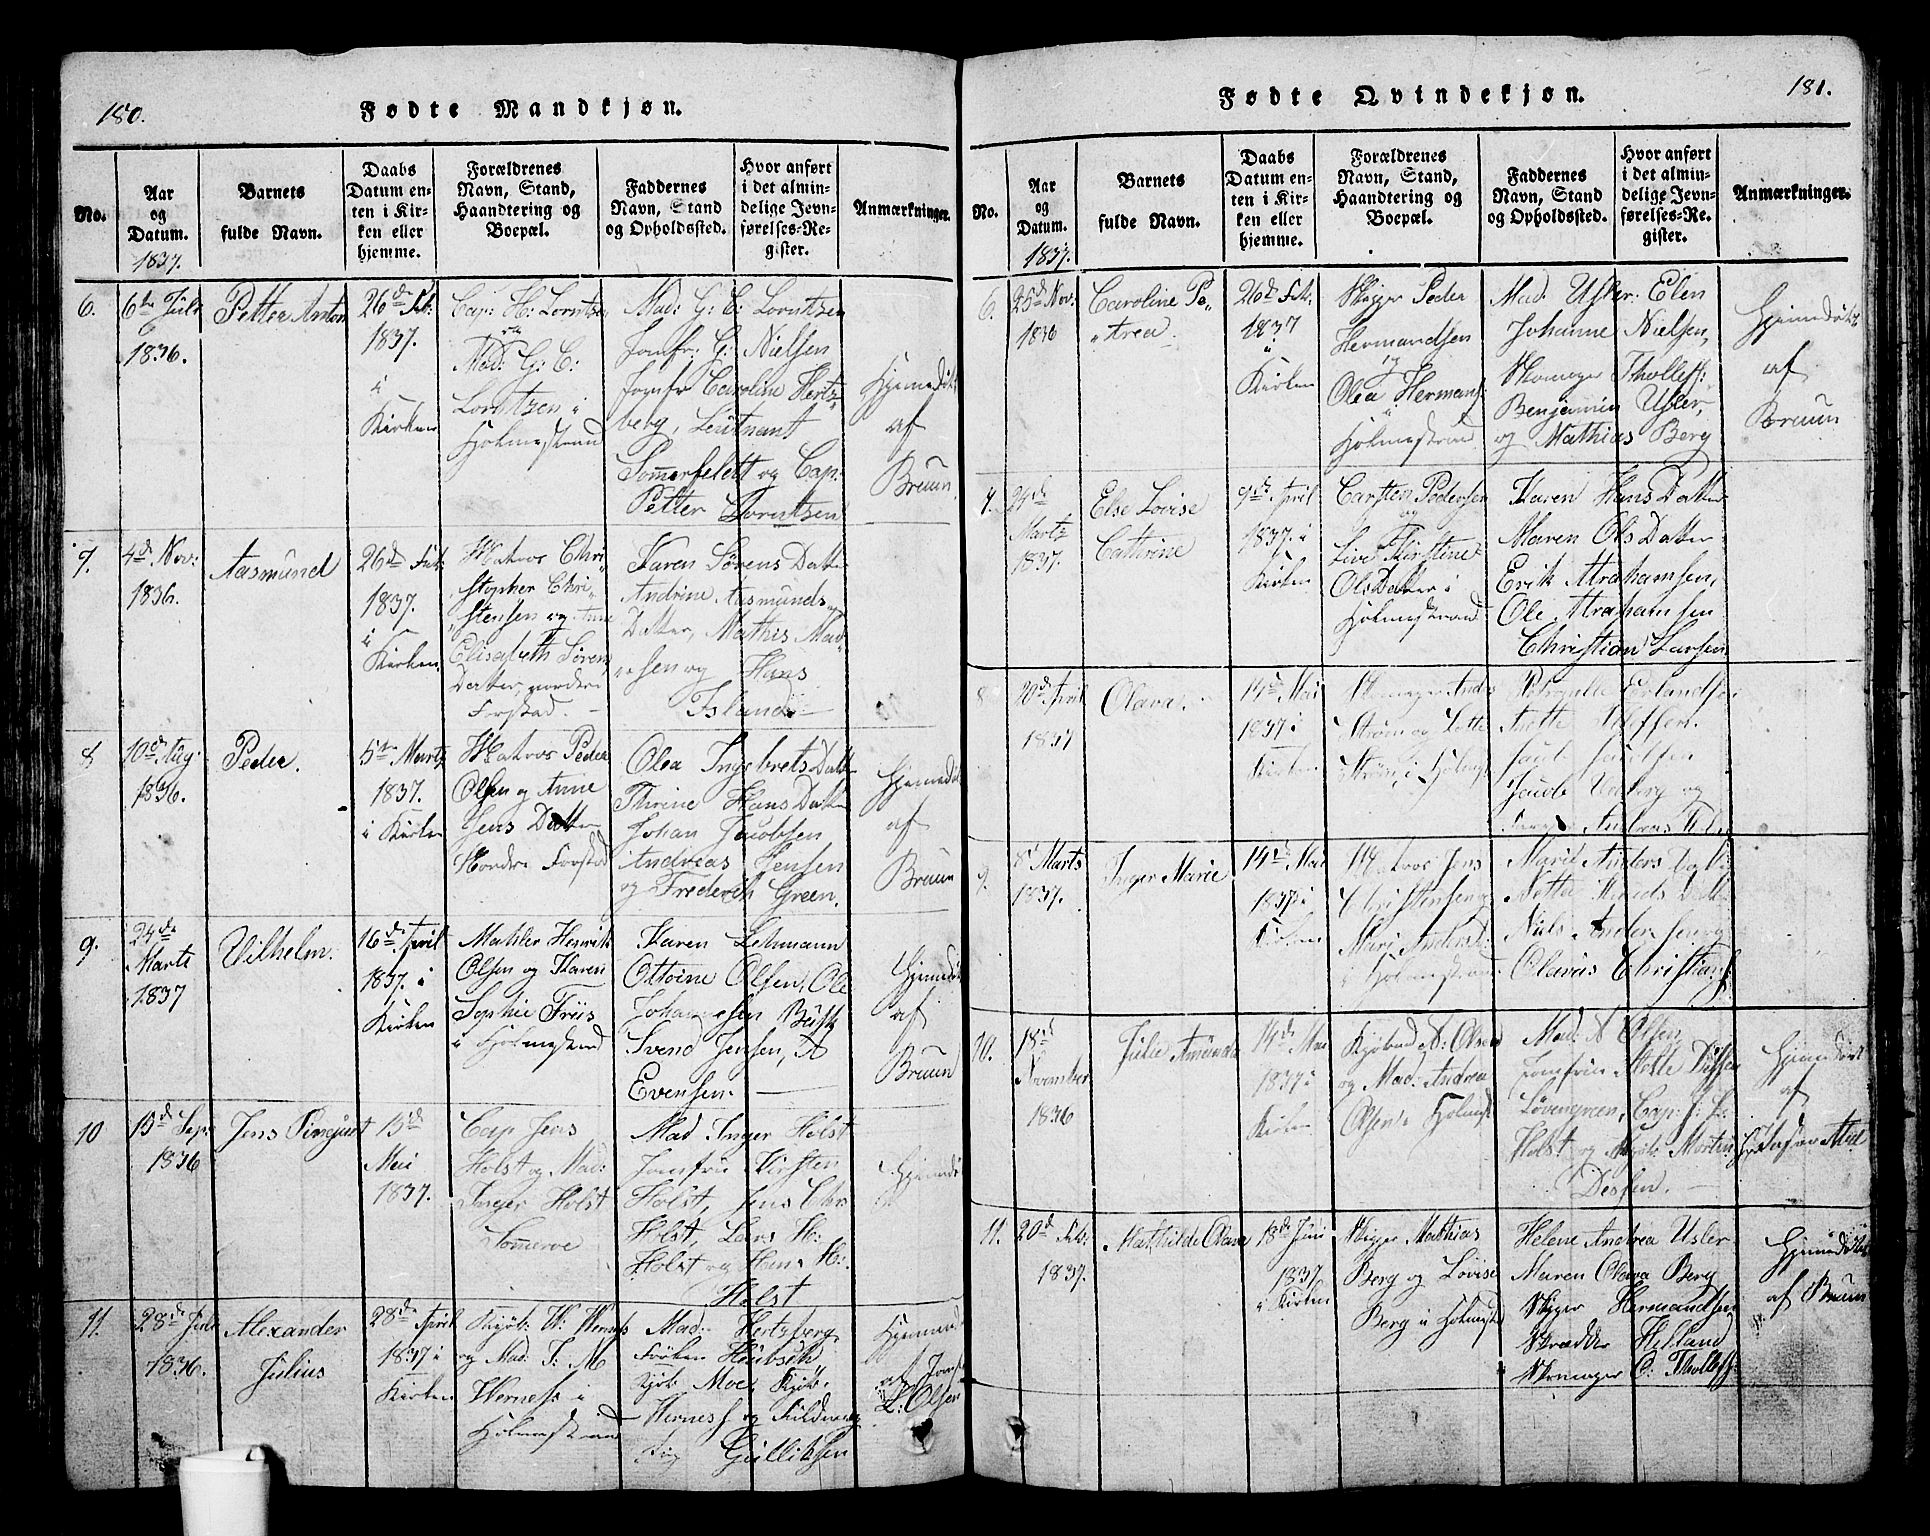 180.
Fødte Mandkjøn.
No.
Aar
og
Datum.
1837.
Barnets
fulde Navn.
Daabs
Datum en-
ten i Kir-
ken eller
hjemme.
Forældrenes
Navn, Stand,
Haandtering og
Boepæl.
Faddernes
Navn, Stand
og Opholdssted.
Hvor anført
i det almin-
delige Jevn-
førelses-Re-
gister.
Anmærkninger.
6.
6te Juli
1836.
Petter Anton
26de Feb:
1837.
i
Kirken
Cap: H: Lorntzen
og
Mad: G: C:
Lorntzen i
Holmestrand
Mad: G: C: Lorntzen
Jomfr: G: Nielsen
Jomfr Caroline Hertz-
berg, Leutnant
Sommerfeldt og Cap:
Petter Lorntzen
Hjemedøbt
af
Bruun.
7.
4de Nov:
1836.
Aasmund
26de Feb:
1837.
i
Kirken
Matros Chri-
stopher Chri-
stensen og Anne
Elisabeth Sørens
Datter, nordre
Forstad.
Karen Sørens Datter
Andrine Aasmunds
Datter, Mathis Mad-
sen og Hans
Island
8
10de Aug:
1836.
Peder.
5te Marts
1837.
i Kirken
Matros Peder
Olsen og Anne
Jens Datter
Nordre Forstad
Olea Ingebrets Datter
Thrine Hans Datter
Johan Jacobsen
Andreas Jensen
og Frederich Green.
Hjemedøbt
af
Bruun
9.
24de
Marts
1837
Vilhelm.
16de April
1837. i
Kirken
Mahler Henrik
Olsen og Karen
Sophie Friis
i Holmestrand
Karen Lehmann
Ottoine Olsen, Ole
Johannesen Busk
Svend Jensen, A
Evensen.
Hjemedøbt
af
Bruun
10
13de Sep:
1836
Jens
15de
Mai
1837.
Cap Jens
Holst og Mad:
Inger Holst
Mad Inger Holst
Jomfru Kirsten
Holst, Jens Chr:
Holst, Lars H:
Holst og Hans H:
Holst
Hjemedøbt
11.
28de Juli
1836.
Alexander
Julius
28de April
1837 i
Kirken
Kjøb: W: Werness
og Mad: T: M
Werness i
Holmestrand
Mad: Hertzberg
Frøken
Kjøb: Moe, Kjøb:
Werness og
Gulliksen
Hjemmedøbt
af
L: Olsen
181.
Fødte Qvindekjøn.
No.
Aar
og
Datum.
1837.
Barnets
fulde Navn.
Daabs
Datum en-
ten i Kir-
ken eller
hjemme.
Forældrenes
Navn, Stand,
Haandtering og
Boepæl.
Faddernes
Navn, Stand
og Opholdssted.
Hvor anført
i det almin-
delige Jevn-
førelses-Re-
gister.
Anmærkninger.
6.
25de Nov:
1836
Caroline Pe-
trea.
26de Feb.
1837
i
Kirken
Skipper Peder
Hermandsen
og
Olea Hermans:
i
Holmestrand
Mad: Usler: Elen
Johanne Nielsen,
Skomager Tholless:
Benjamin Usler,
og Mathias Berg
Hjemedøbt
af
Bruun
7.
24de
Marts
1837.
Else Lovise
Cathrine
9de April
1837. i
Kirken
Carsten Pedersen
og
Live Kirstine
OlsDatter i
Holmestrand
Karen Hans Datter
Maren Ols Datter
Erik Abrahamsen,
Ole Abrahamsen
Christian Larsen
8
20de April
1837
Olava.
14de Mai
1837 i
Kirken
Skomager Anders
Strøm og Lotte
Strøm i Holmest:
Anders
9.
8 Marts
1837.
Inger Marie
14de Mai
1837 i
Kirken
Matros Jens
Christensen og
Mari Anders:
i Holmestrand
Niels Andersen og
Olavus Christians:
10.
18de
November
1836
Julie Amunda
14de Mai
1837 i
Kirken
Kjøbmd N: Olsen
og Mad: Andrea
Olsen i Holmest:
Mad: N Olsen,
Jomfrue
Løvengreen, Cap: J: L:
Holst og Kjøb: Morten
Desfen.
Hjemedøbt
af
11.
20de Feb:
1837.
Mathilde Olava
18de Juni
1837
i Kirken
Skipper Mathias
Berg og Lovise
Berg i Holmestd
Helene Andrea Usler
Maren Olava Berg
Skipper Hermandsen
Skrædder Helland
Skomager C. Tholless:
Hjemedøbt
af Bruun